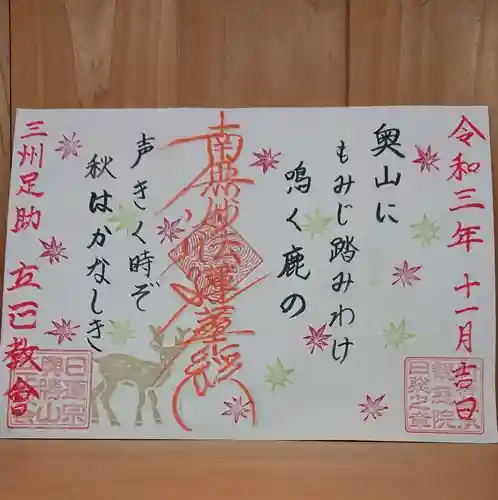 令和三年 十一月吉日
奥山に
もみじ踏みわけ
鳴く鹿の
南無妙法蓮華経
声きく時ぞ
秋はかなしき
三州足助 立正教會